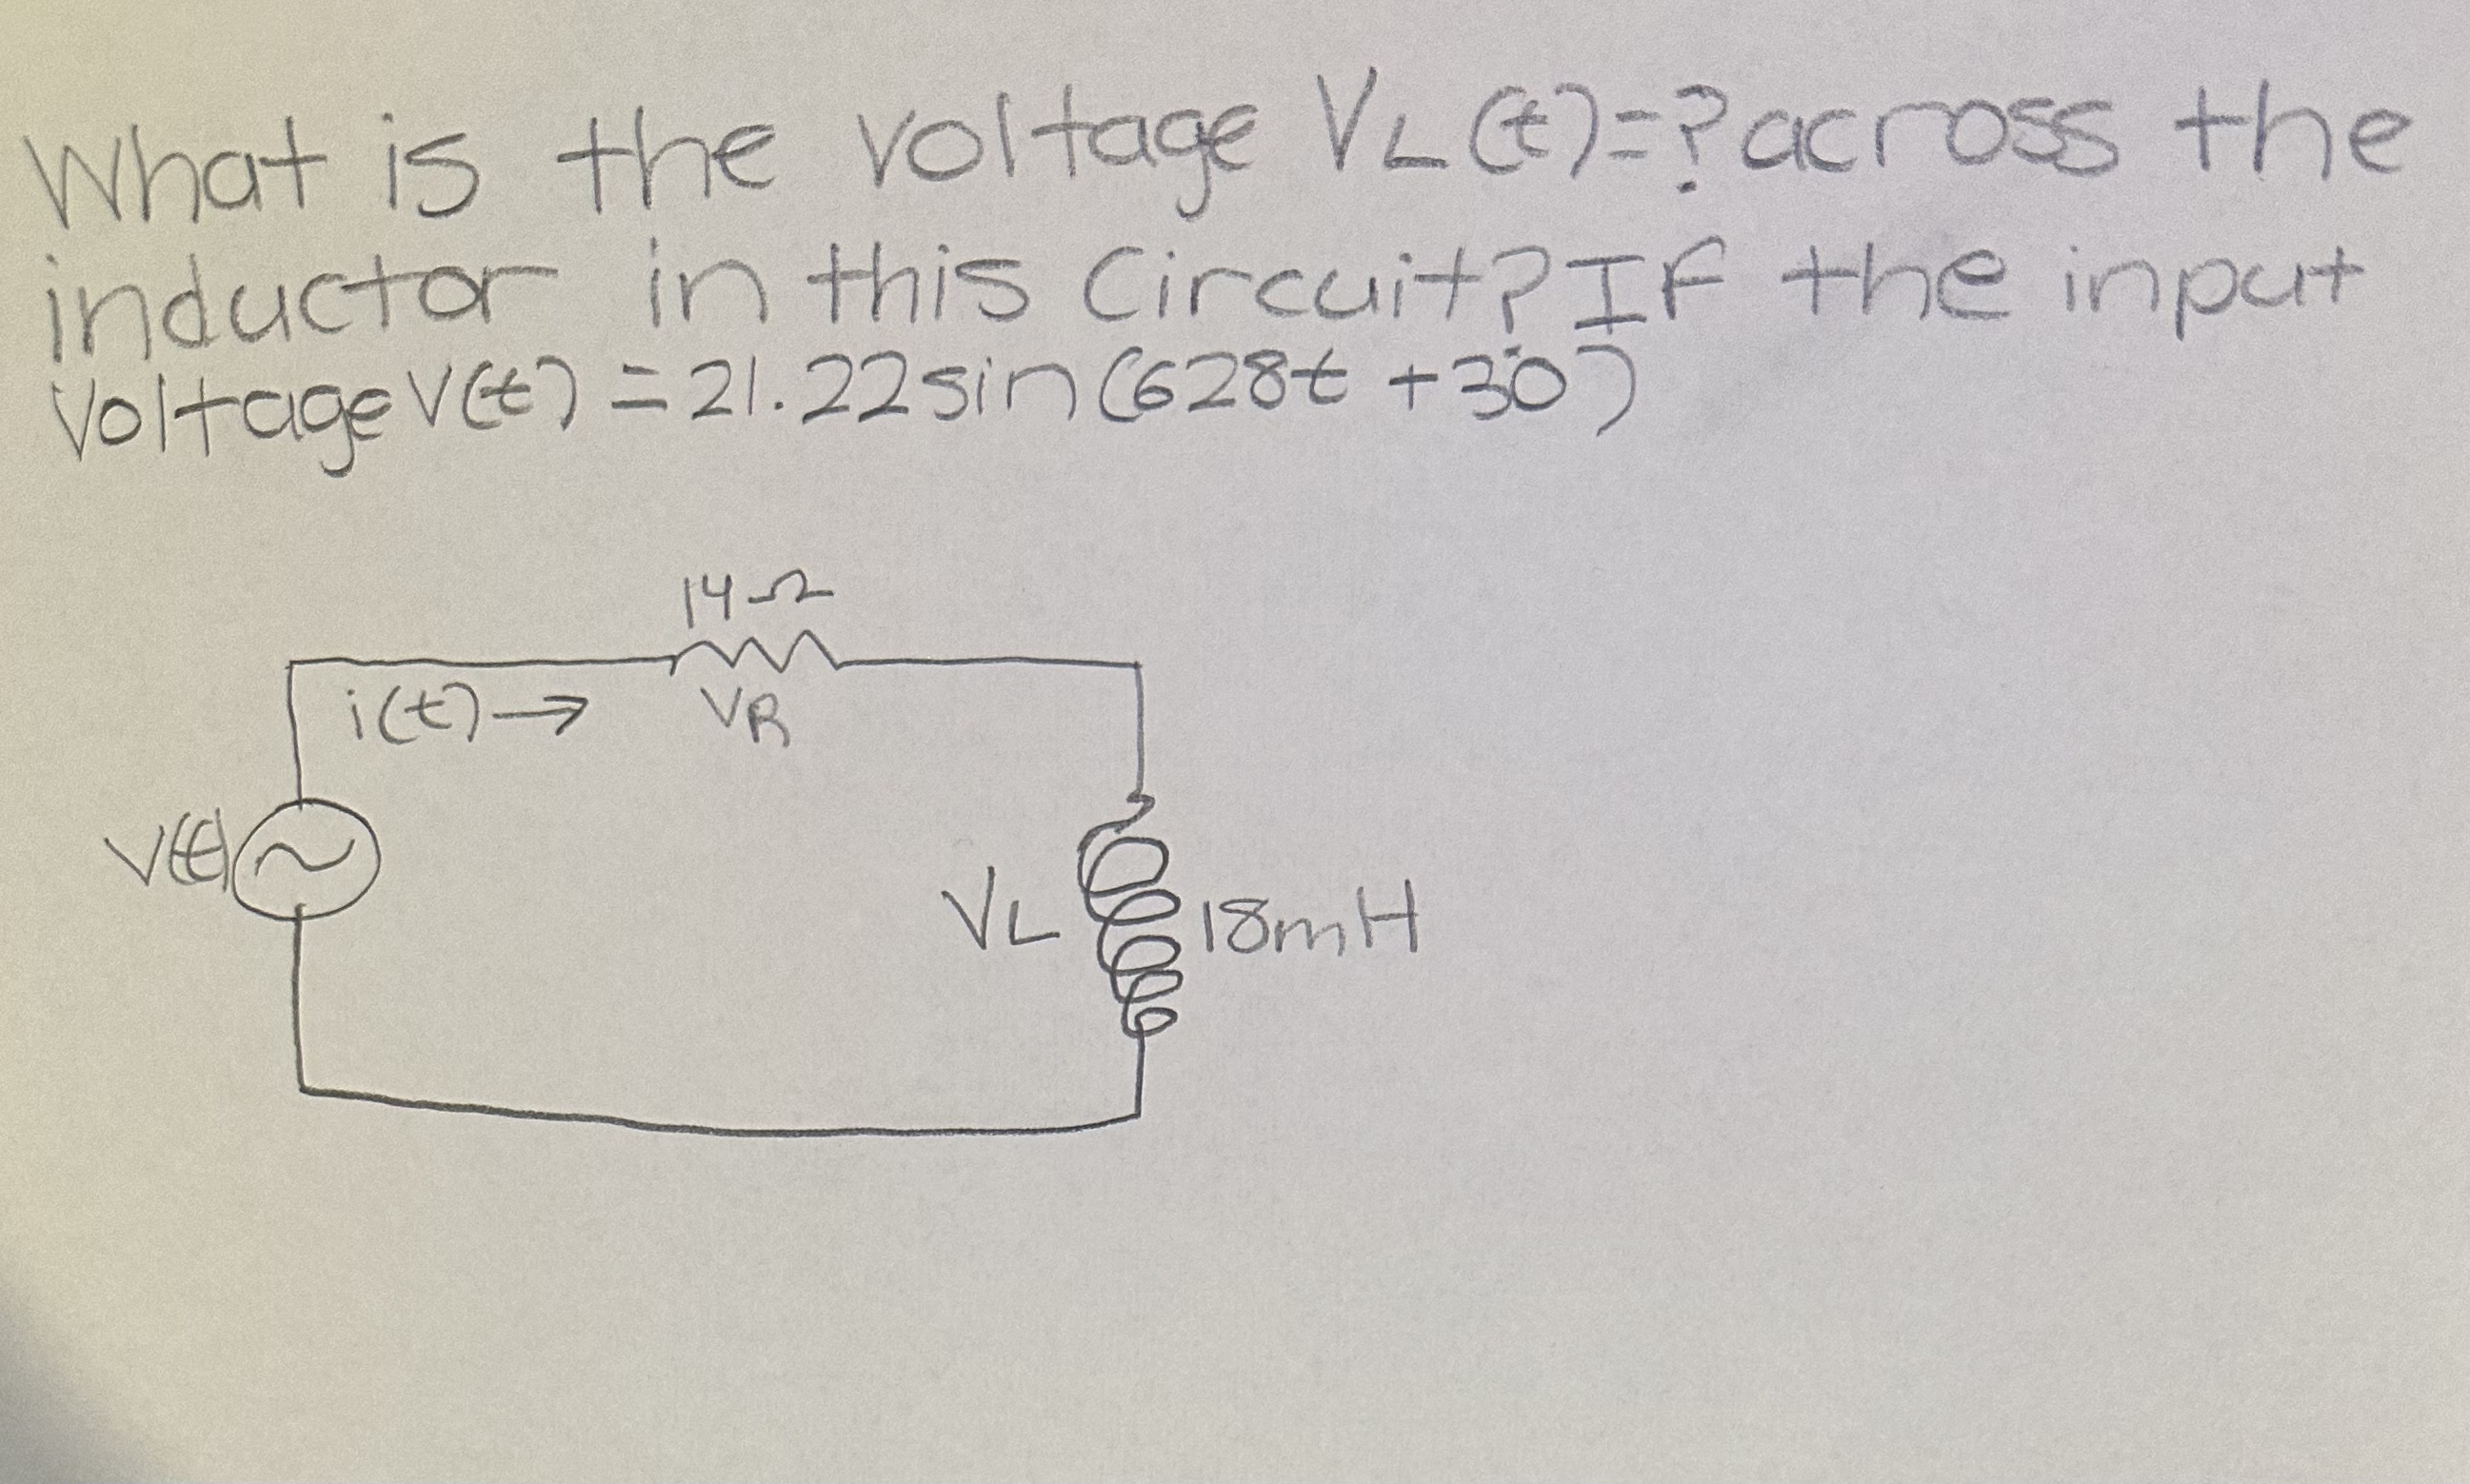 What is the voltage VL(t)=? across the
inductor in this circuit? If the input
Voltage V(t) = 21.22sin(628t + 30)
14Ω
i(t)→
VR
V(t)
VL
18mH